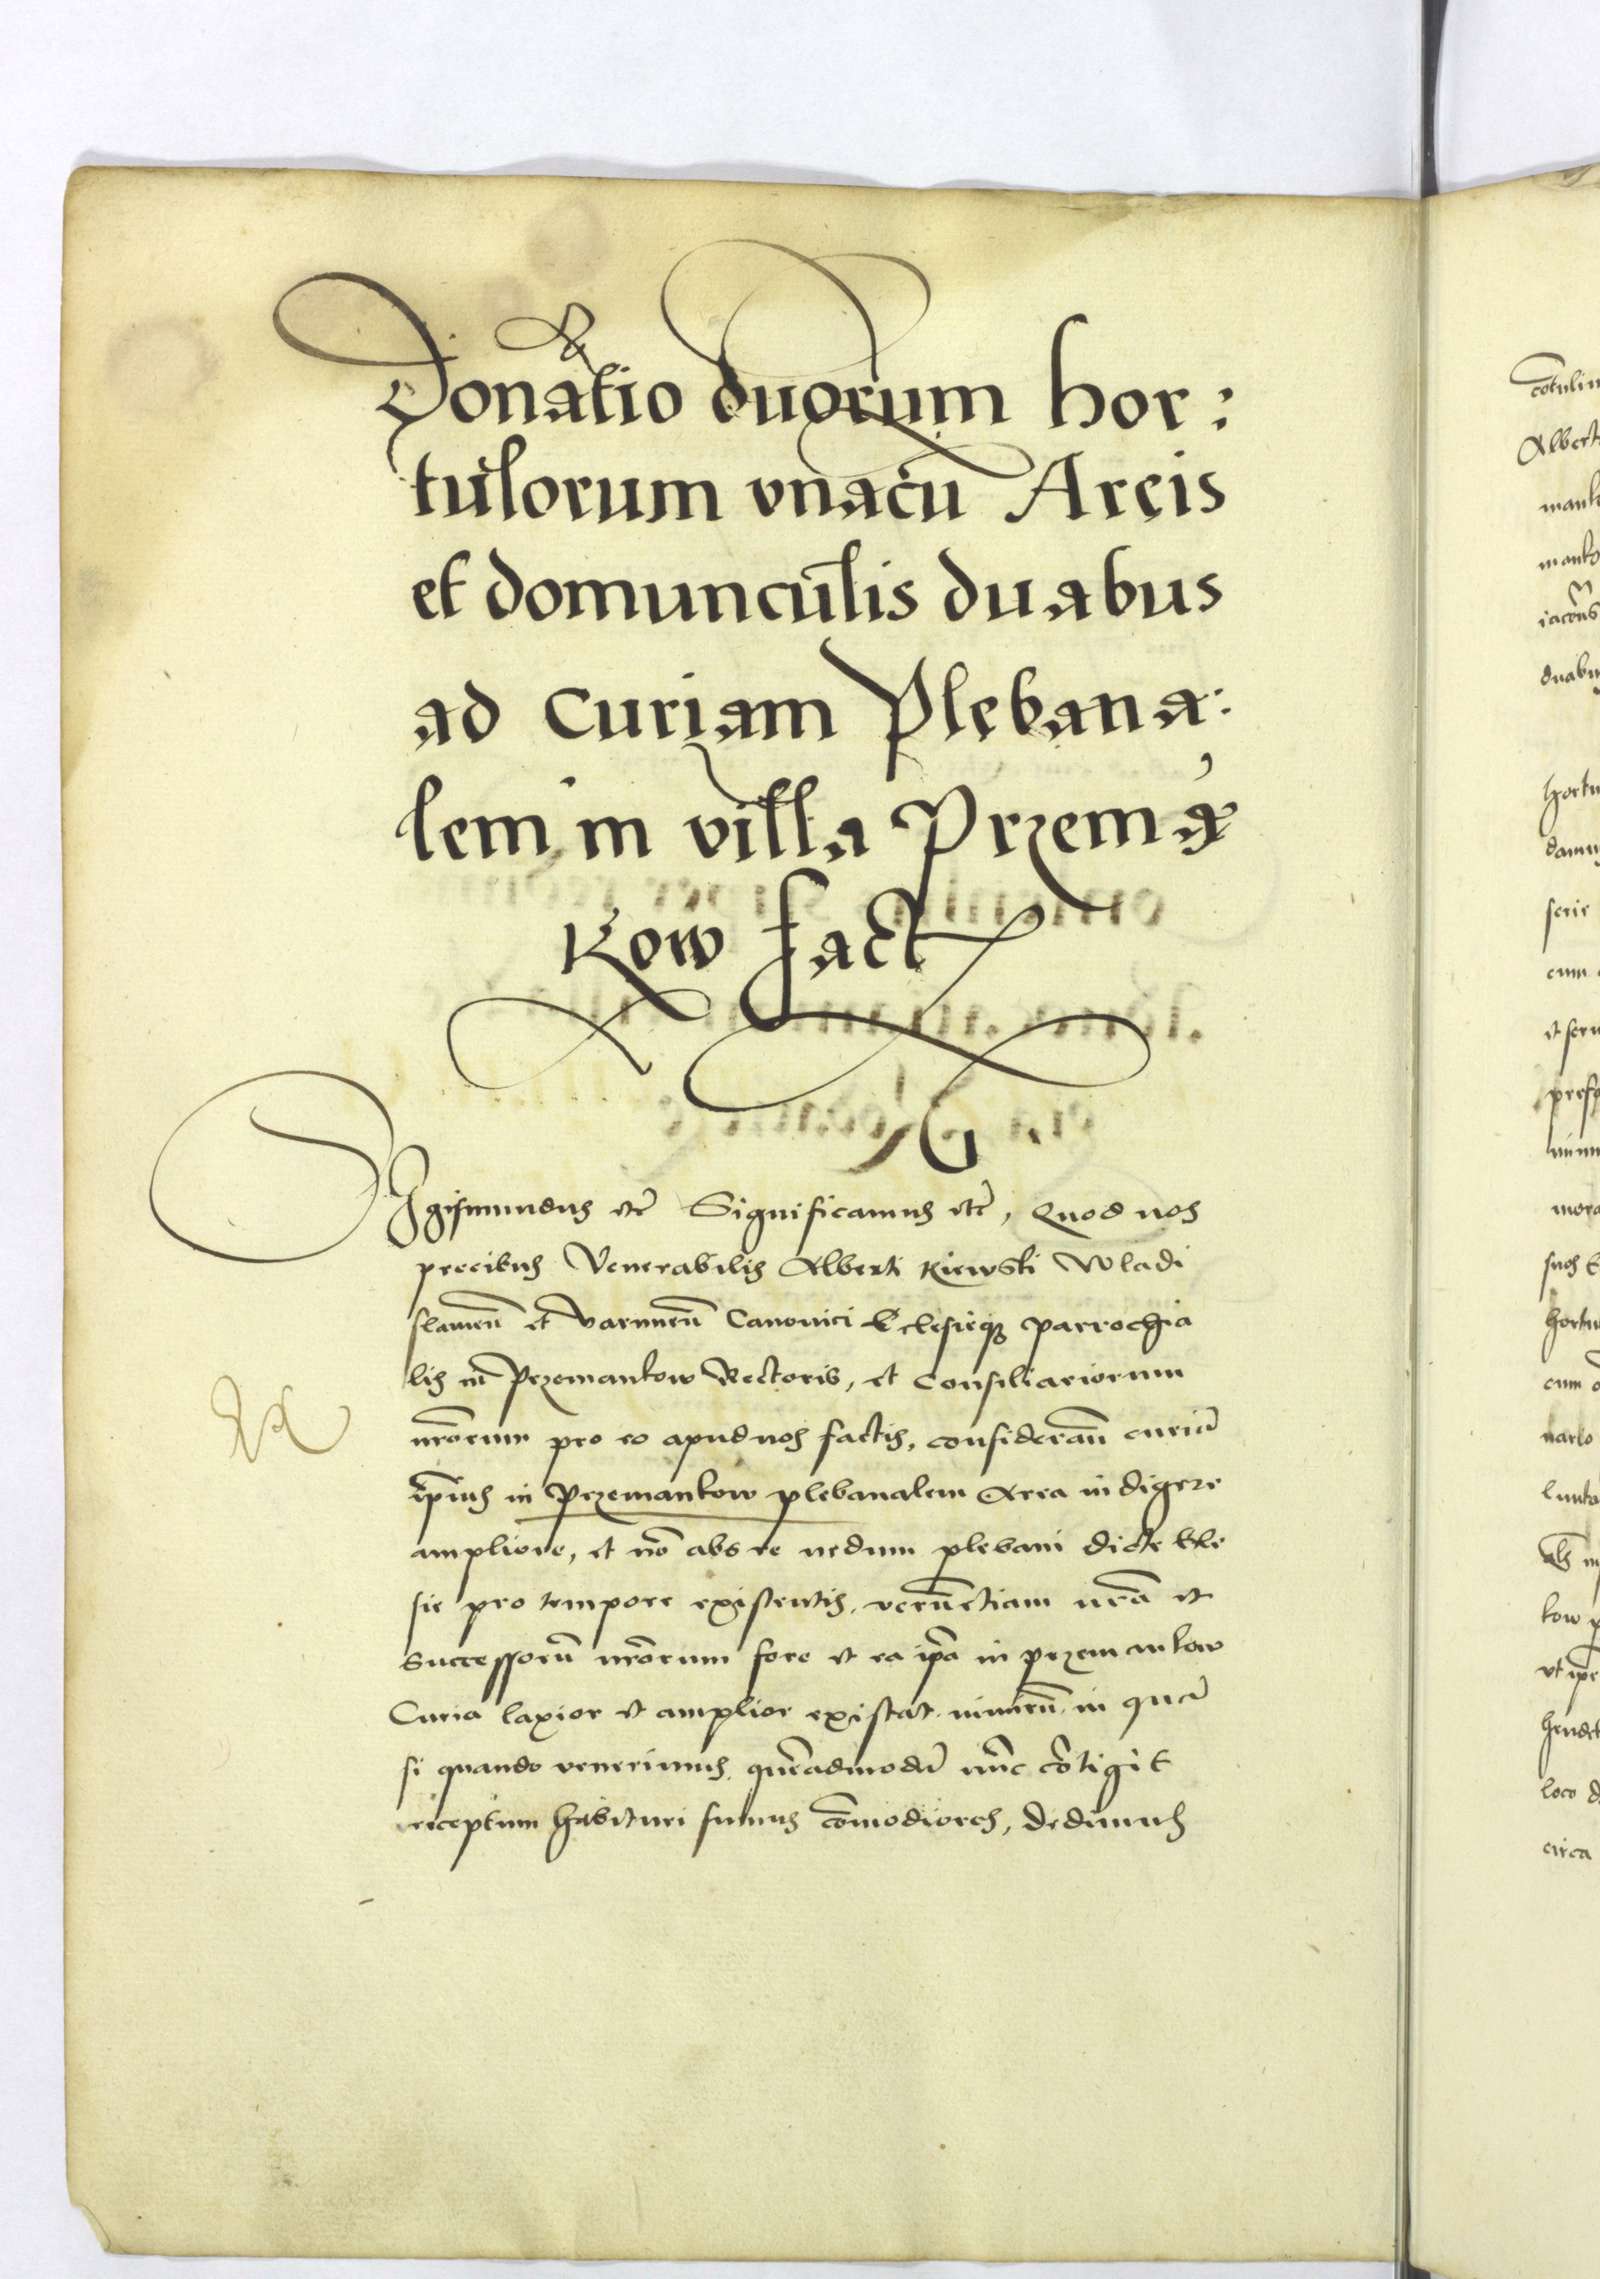 Donatio duorum hor:
tulorum vnacū Areis
et domunculis duabus
ad Curiam Plebana:
lem in villa Przemą
kow fact
Sigismundus etc̄ Significamus etc̄, Quod nos
precibus Venerabilis Alberti Kiewski Wladi
slauieñ et Varmieñ Canonici Ecclesieq̄ parrochia
lis in Przemankow Rectoris, et Consiliariorum
nr̄orum pro eo apud nos factis, considerañ curiā
ip̄ius in Przemankow plebanalem Area indigere
ampliore, et nō abs re nedum plebani dicte Eccle
sie pro tempore existentis, verū etiam nr̄a et
Successorū nr̄orum fore vt ea ip̄a in przemankow
Curia laxior et amplior existat. nimirū in quā
si quando venerimus, quēadmodū nūc cōtigit
receptum habituri sumus cōmodiores, dedimus
cōtulim
Albert
mank
manko
duabu
hortu
damu
serie
cum
et seru
suos
hortu
cum
narlo
kow p
vt ipe
loco d
circa